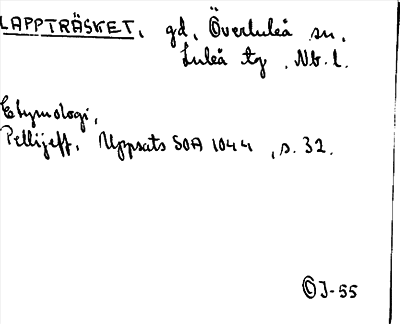 LAPPTRÄSKET, gd, Överluleå sn.
Luleå tg, Nb. l.
Etymologi,
Pellijeff, Uppsats SOA 1044, s. 32.
© J-55